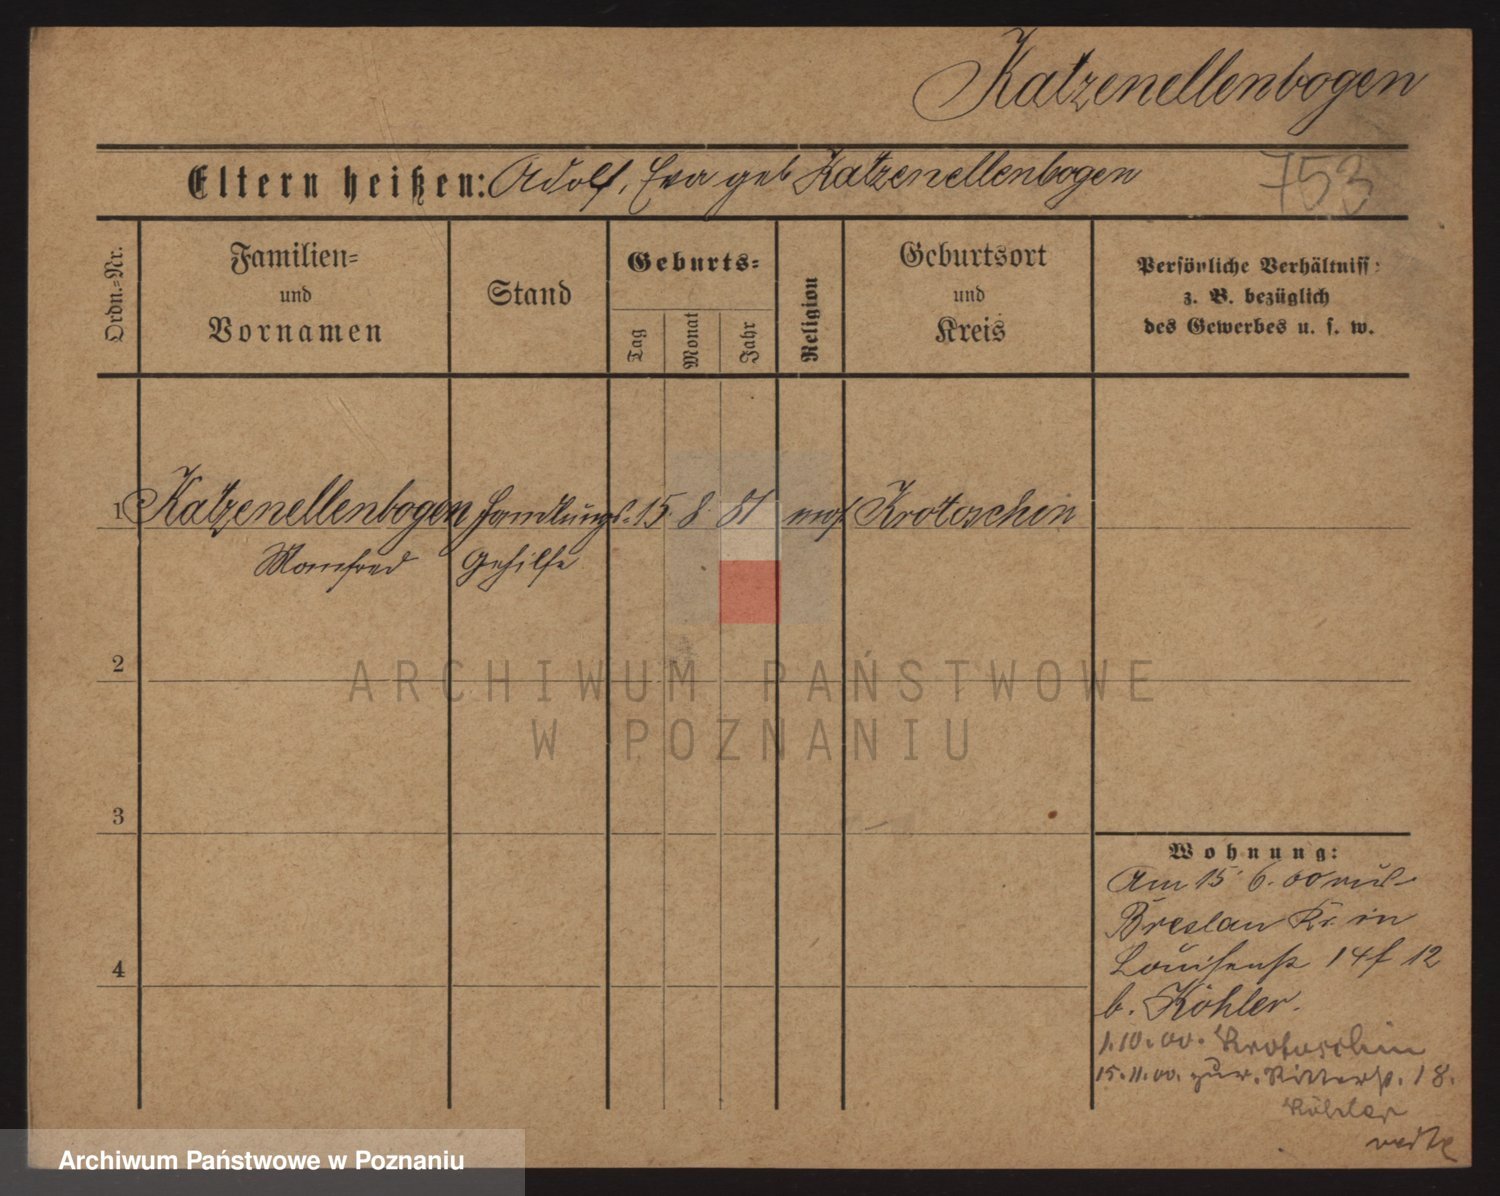 Katzenellenbogen
Eltern heißen: Adolf, Eva geb Katzenellenbogen
753
Ordn.-Nr.
Familien-
und
Vornamen
Stand
Geburts-
Tag
Monat
Jahr
Religion
Geburtsort
und
Kreis
Persönliche Verhältniss:
z. B. bezüglich
des Gewerbes u. s. w.
1 Katzenellenbogen Handlungs- 15. 8. 81 mos Krotoschin
Manfred Gehilfe
2
ARCHIWUM PAŃSTWOWE
W POZNANIU
3
4
Wohnung:
Am 15. 6. 00 aus
Breslau Kr. in
Louisenstr 14 f 12
b. Köhler.
1.10.00. Krotoschin
15.11.00. zur. Ritterstr. 18.
Köhler
Archiwum Państwowe w Poznaniu